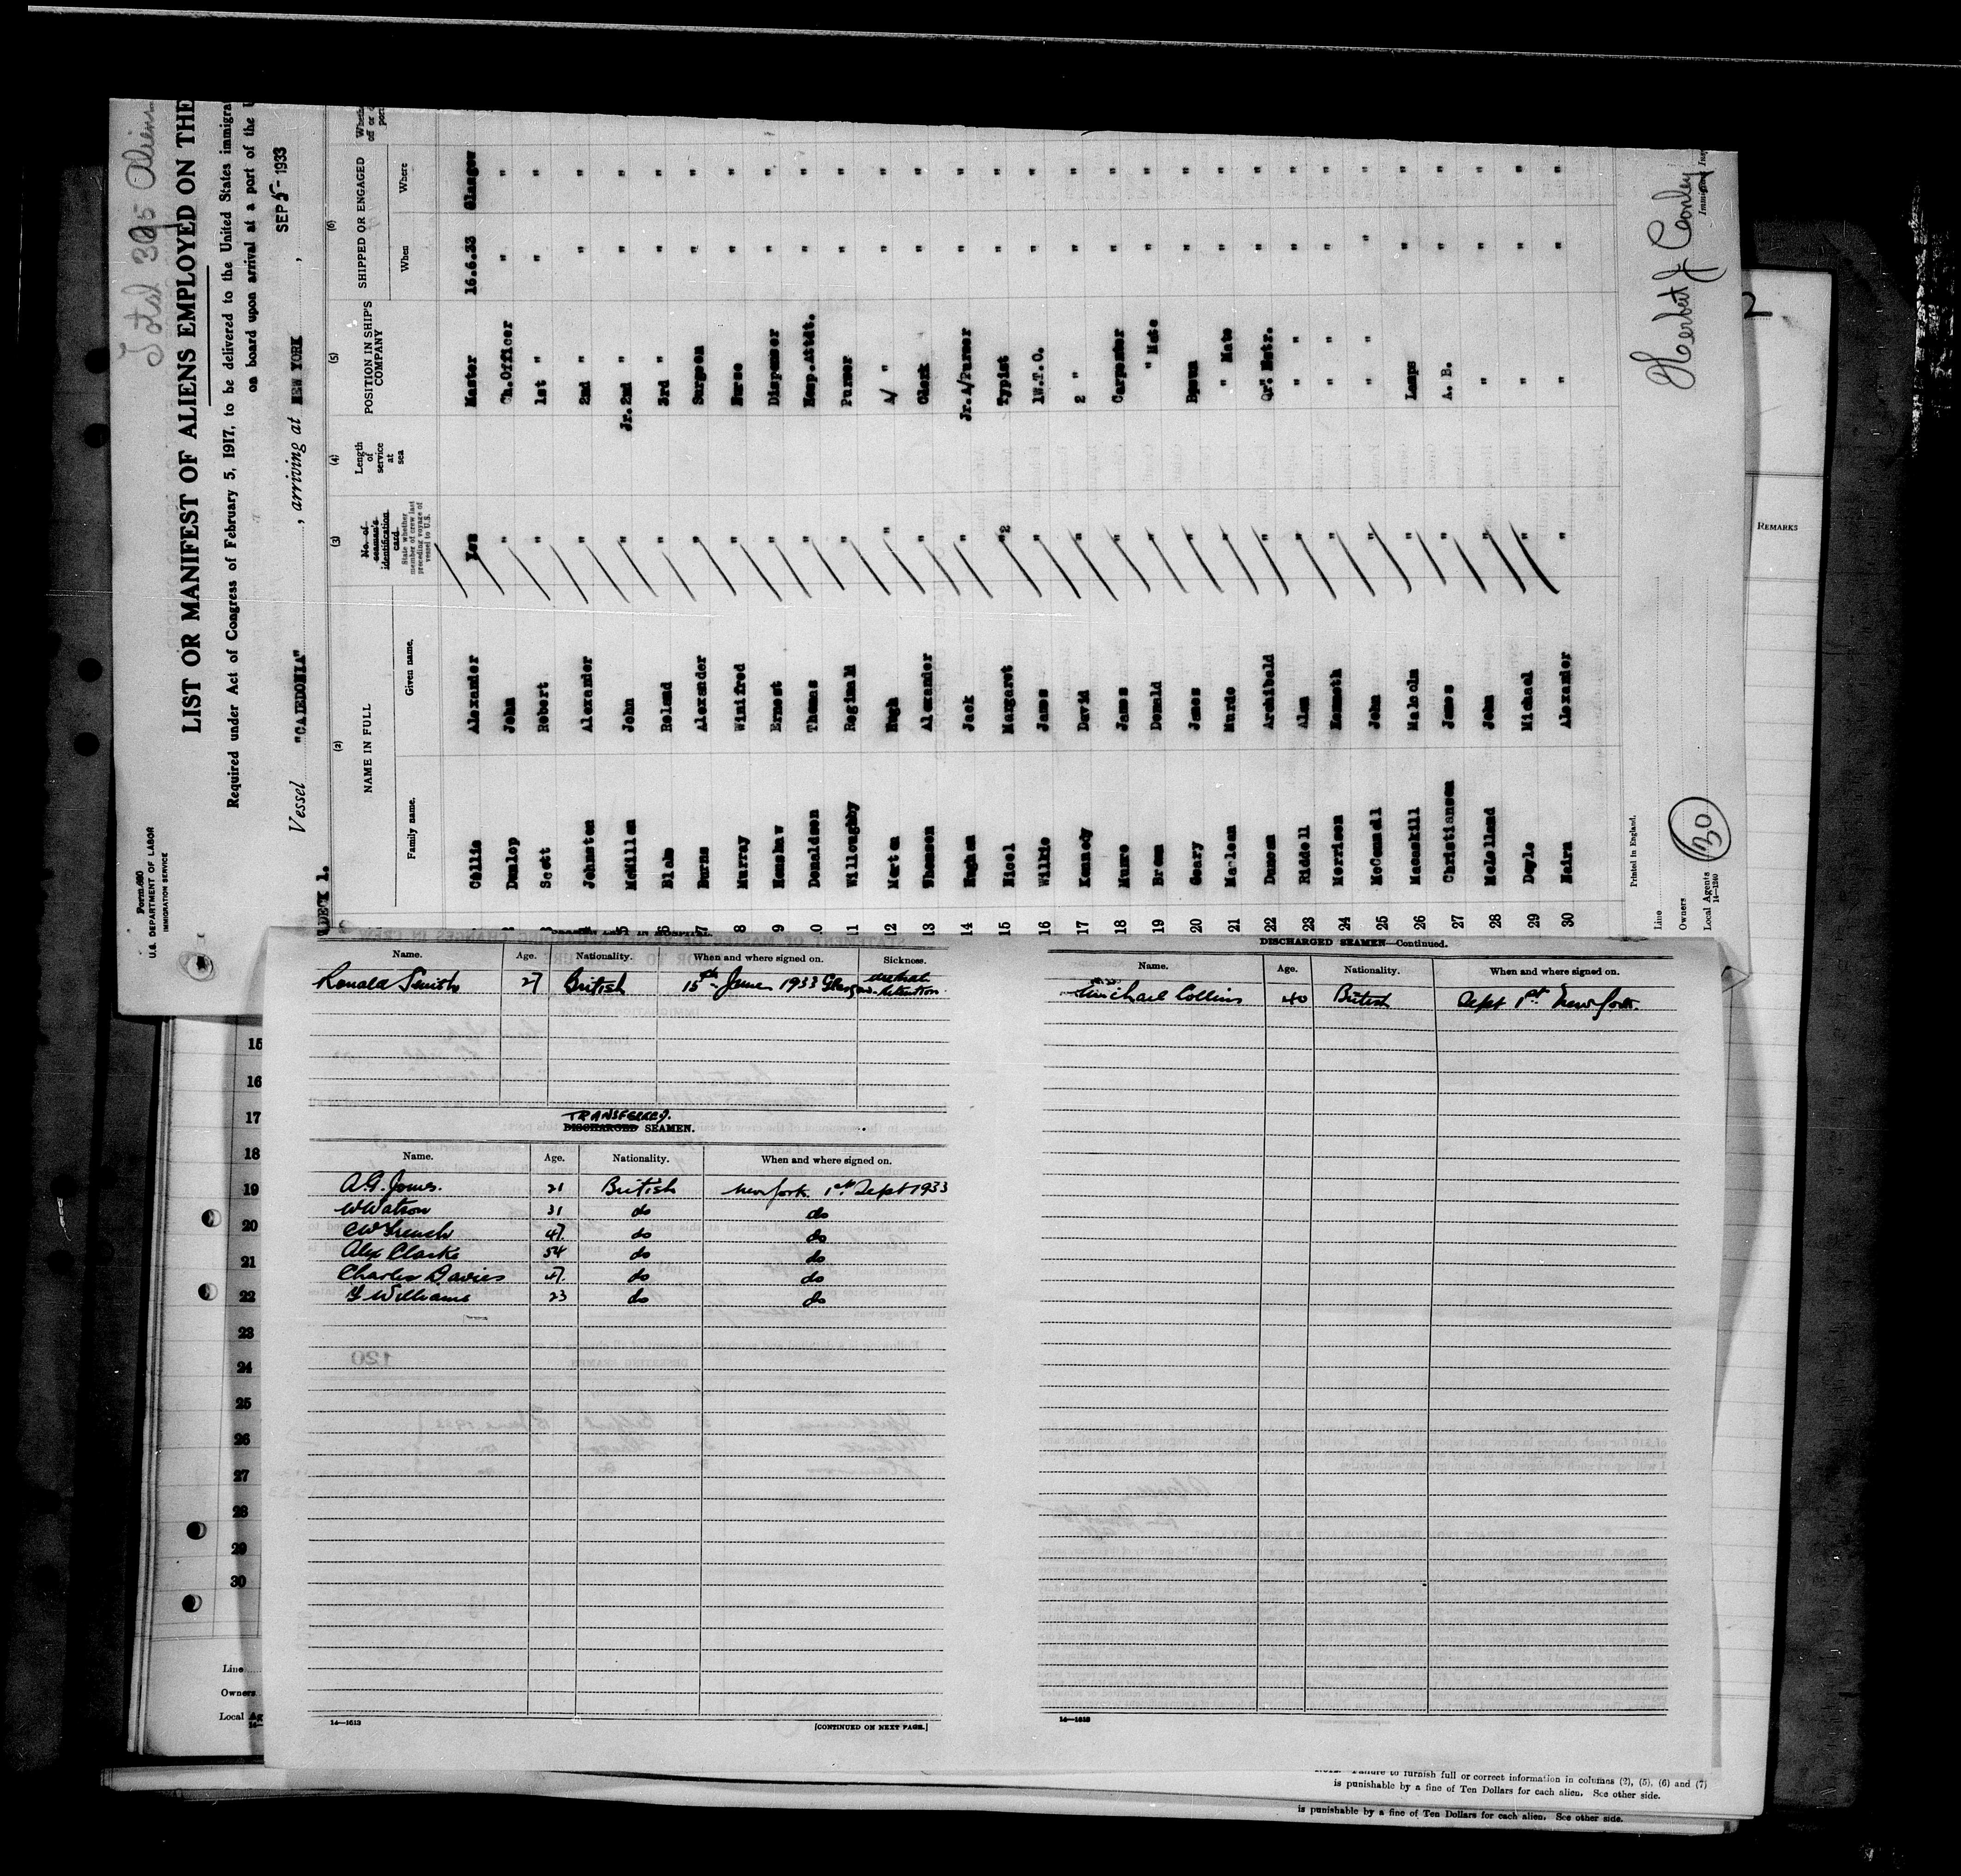 Form 680
U.S. DEPARTMENT OF LABOR
IMMIGRATION SERVICE
Total 305 Aliens
LIST OR MANIFEST OF ALIENS EMPLOYED ON THE
Required under Act of Congress of February 5, 1917, to be delivered to the United States immigra
on board upon arrival at a port of the U
Vessel "CALEDONIA", arriving at NEW YORK, SEP 5- 1933
DECK 1.
(2) (3) (4) (5) (6)
NAME IN FULL
Family name. Given name.
No. of seaman's identification card
State whether member of crew last preceding voyage of vessel to U.S.
Length of service at sea
POSITION IN SHIP'S COMPANY
SHIPPED OR ENGAGED
When Where
Collie Alexander Yes Master 16.6.33 Glasgow
Dunlop John " Ch.Officer " "
Scott Robert " 1st " " "
Johnston Alexander " 2nd " " "
5 McMillan John " Jr.2nd " " "
6 Roland " 3rd " " "
7 Burns Alexander " Surgeon " "
8 Murray Winifred " Nurse " "
9 Henshaw Ernest " Dispenser " "
10 Donaldson Thomas " Hosp.Attdt. " "
11 Willoughby Reginald " Purser " "
12 Morton Hugh " A/ " " "
13 Thomson Alexander " Clerk " "
14 Hughes Jack " Jr.A/Purser " "
15 Nicol Margaret " 2 Typist " "
16 Wilkie James " 1W.T.O. " "
17 Kennedy David " 2 " " "
18 Munro James " Carpenter " "
19 Donald " " Mate " "
20 Geary James " Bosun " "
21 McLean Murdo " " Mate " "
22 Duncan Archibald " Qr. Mstr. " "
23 Riddell Alan " " " " "
24 Morrison Kenneth " " " " "
25 McConnell John " " " " "
26 Macaskill Malcolm " Lamps " "
27 Christianson James " A. B. " "
28 McLelland John " " " "
29 Doyle Michael " " " "
30 Nairn Alexander " " " "
Printed in England.
Line
Owners
Local Agents
14—1240
130
Herbert J Conley
Immigrant Ins
2
REMARKS
Name. Age. Nationality. When and where signed on. Sickness.
Ronald Smith 27 British 15th June 1933 Glasgow. retention
TRANSFERRED.
DISCHARGED SEAMEN.
Name. Age. Nationality. When and where signed on.
A.G. Jones. 21 British New York. 1st Sept 1933
W Watson 31 do do
CW French 47. do do
Alex Clarke 54 do do
Charles Davies 47. do do
Williams 23 do do
14—1613
[CONTINUED ON NEXT PAGE.]
DISCHARGED SEAMEN—Continued.
Name. Age. Nationality. When and where signed on.
Michael Collins 40 British Sept 1st New York.
14—1613
15
16
17
18
19
20
21
22
23
24
25
26
27
28
29
30
Line
Owners
Local Ag
Failure to furnish full or correct information in columns (2), (5), (6) and (7)
is punishable by a fine of Ten Dollars for each alien. See other side.
is punishable by a fine of Ten Dollars for each alien. See other side.